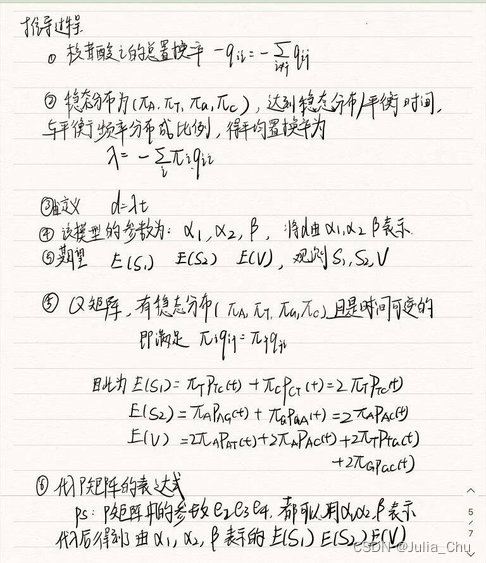 推导过程
① 核苷酸i的总置换率 -qᵢᵢ = -∑i≠j qᵢⱼ
② 稳态分布为(πA, πT, πG, πC), 达到稳态分布/平衡时间,
与平衡频率分布成比例, 得平均置换率为
λ = -∑i πᵢqᵢᵢ
③ 定义 d=λt
④ 该模型的参数为: α₁, α₂, β, 将d由α₁,α₂ β表示.
⑤期望 E(S₁) E(S₂) E(V), 观测S₁,S₂,V
⑤ Q矩阵, 有稳态分布(πA, πT, πG, πC)且是时间可逆的
即满足 πᵢqᵢⱼ=πⱼqⱼᵢ
因此为 E(S₁)= πTPTC(t) + πCPCT(t) = 2πTPTC(t)
E(S₂) = πAPAG(t) + πGPGA(t) = 2πAPAG(t)
E(V) = 2πAPAT(t)+2πAPAC(t)+2πTPTG(t)
+2πGPGC(t)
⑥ 代入P矩阵的表达式
ps: P矩阵中的参数e₂e₃e₄, 都可以用α₁,α₂,β表示
代入后得到由α₁, α₂, β表示的E(S₁) E(S₂) E(V)
5
/
7
CSDN @Julia_Chu